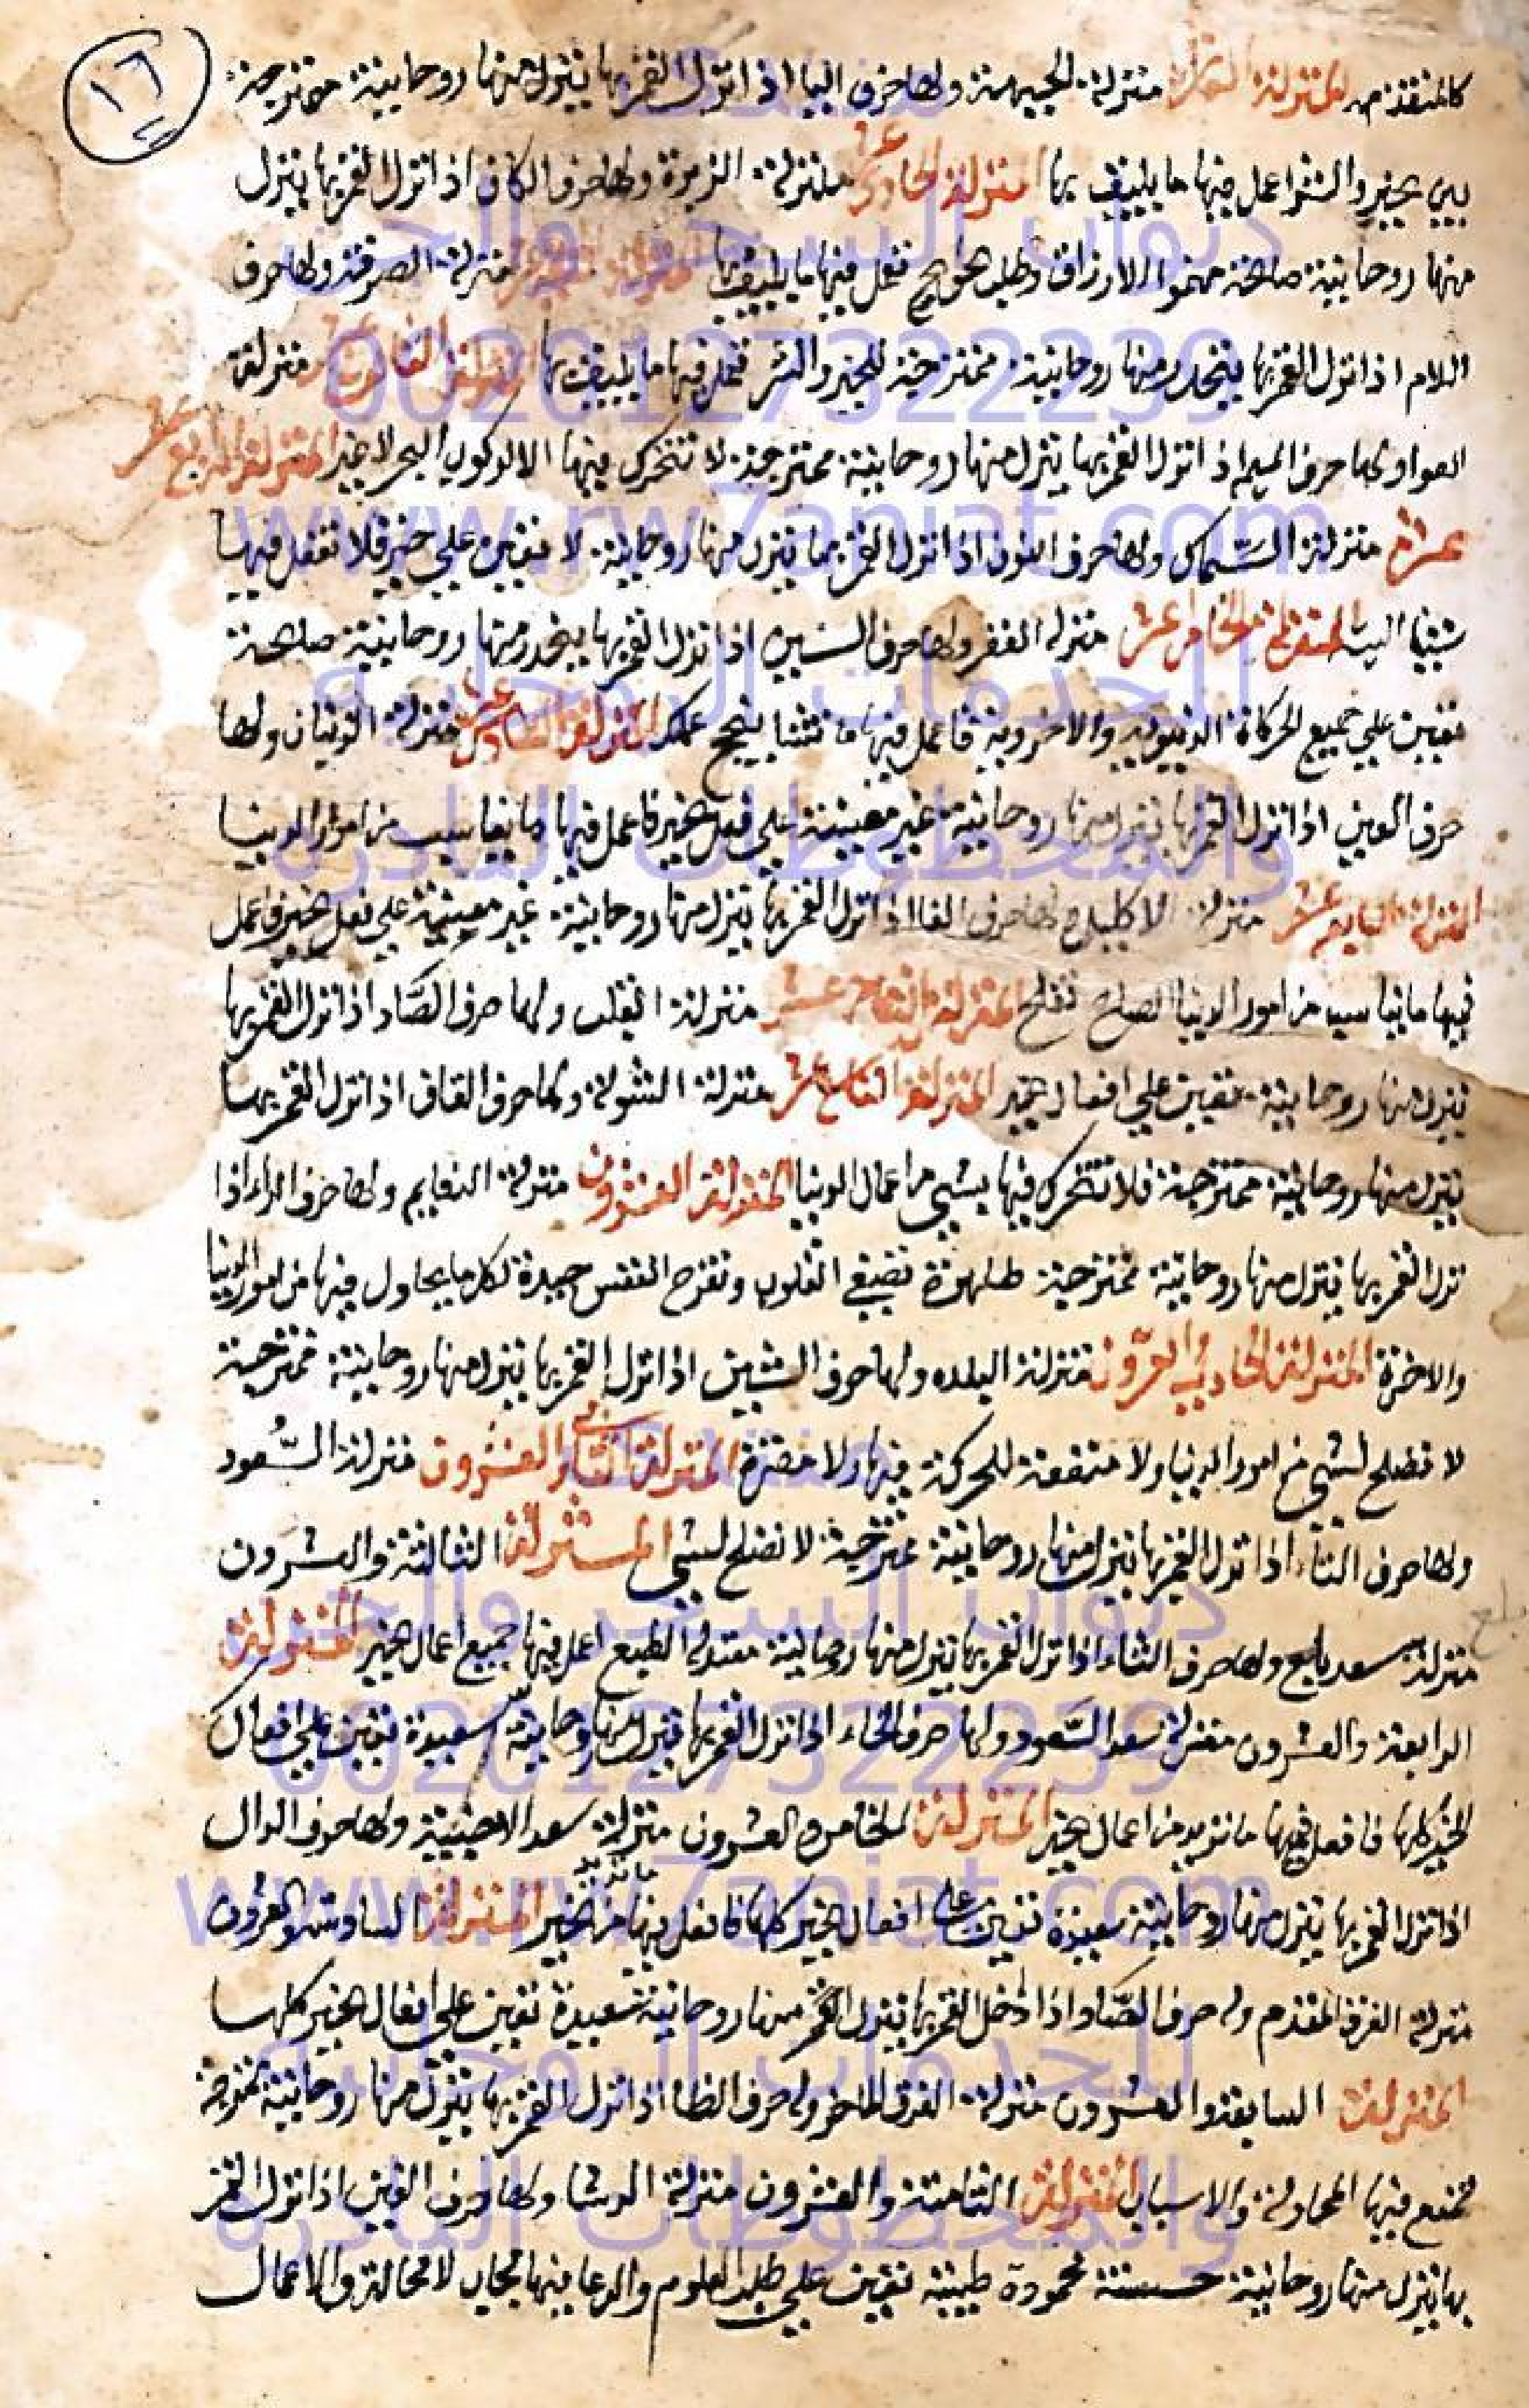 ١٦
كالمتقدمه المنزلة العاشرة منزلة الجبهة ولها حرف اليا اذا نزل القمر بها ينزل منها روحانية ممتزجة
بين الخير والشر اعمل فيها ما يليق بها المنزلة الحادي عشر منزلة الزبرة ولها حرف الكاف اذا نزل القمر بها ينزل
منها روحانية صالحة الارزاق وطلب الحوايج فعل فيها ما يليق بها منزلة الصرفة ولها حرف
اللام اذا نزل القمر بها ينحدر منها روحانية ممتزجة للخير والشر فعل فيها ما يليق بها منزلة
العوا ولها حرف الميم اذا نزل القمر بها ينزل منها روحانية ممتزجة لا تتحرك فيها الا لركوب البحر لا غير المنزلة الرابع عشر
عشرة منزلة السماك ولها حرف النون اذا نزل القمر بها ينزل منها روحانية لا تعين على خير فلا تفعل فيها
شيئا البته المنزلة الخامس عشر منزلة الغفر ولها حرف السين اذا نزل القمر بها ينحدر منها روحانية صالحة
تعين على جميع الحركات الدنيوية والاخروية فاعمل فيها ما تشا ينجح عملك المنزلة السادس عشر منزلة الزبنان ولها
حرف العين اذا نزل القمر بها ينزل منها روحانية غير معينة على فعل الخير فاعمل فيها ما يناسب من امور الدينا
المنزلة السابعه عشر منزلة الاكليل ولها حرف الفا اذا نزل القمر بها ينزل منها روحانية غير معينة على فعل الخير فاعمل
فيها ما يناسب من امور الدنيا الصلاح تفلح المنزلة الثامن عشر منزلة القلب ولها حرف الصاد اذا نزل القمر بها
ينزل منها روحانية تعين على افعال الخير المنزلة التاسع عشر منزلة الشولة ولها حرف القاف اذا نزل القمر بها
ينزل منها روحانية ممتزجة فلا تتحرك فيها بشي من اعمال الدنيا المنزلة العشرون منزلة النعايم ولها حرف الراء اذا
نزل القمر بها ينزل منها روحانية ممتزجة طاهرة تضيء القلوب وتفرح النفس جيدة لكل ما يحاول فيها من امور الدنيا
والاخرة المنزلة الحادية العشرون منزلة البلده ولها حرف الشين اذا نزل القمر بها ينزل منها روحانية ممتزجة
لا تصلح لشي من امور الدنيا ولا منفعة للحركة فيها ولا مضرة المنزلة الثانية والعشرون منزلة السعود
ولها حرف التاء اذا نزل القمر بها ينزل منها روحانية ممتزجة لا تصلح لشي المنزلة الثالثة والعشرون
منزلة سعد بلع ولها حرف الثاء اذا نزل القمر بها ينزل منها روحانية معتدلة الطبع اعمل فيها جميع اعمال الخير المنزلة
الرابعة والعشرون منزلة سعد السعود ولها حرف الخاء اذا نزل القمر بها ينزل منها روحانية سعيدة تعين على افعال
الخير كلها فافعل فيها ما تريد من اعمال الخير المنزلة الخامس والعشرون منزلة سعد الاخبية ولها حرف الذال
اذا نزل القمر بها ينزل منها روحانية سعيدة تعين على افعال الخير كلها فافعل فيها ما تريد من الخير المنزلة السادسة والعشرون
منزلة الفرغ المقدم وله حرف الضاد اذا دخل القمر بها ينزل منها روحانية سعيدة تعين على افعال الخير كلها
المنزلة السابعة والعشرون منزلة الفرغ الماخر وله حرف الظا اذا نزل القمر بها ينزل منها روحانية ممتزجة
تمنع فيها المحاولة والاسباب المنزلة الثامنة والعشرون منزلة الرشا ولها حرف الغين اذا نزل القمر
بها ينزل منها روحانية حسنة محمودة طيبة تعين على طلب العلوم والدعا فيها مجاب لا محالة والاعمال
بلع
ديوان السحر والجن
0020127322239
www.rw7aniat.com
للخدمات الروحانيه
والمخطوطات النادره